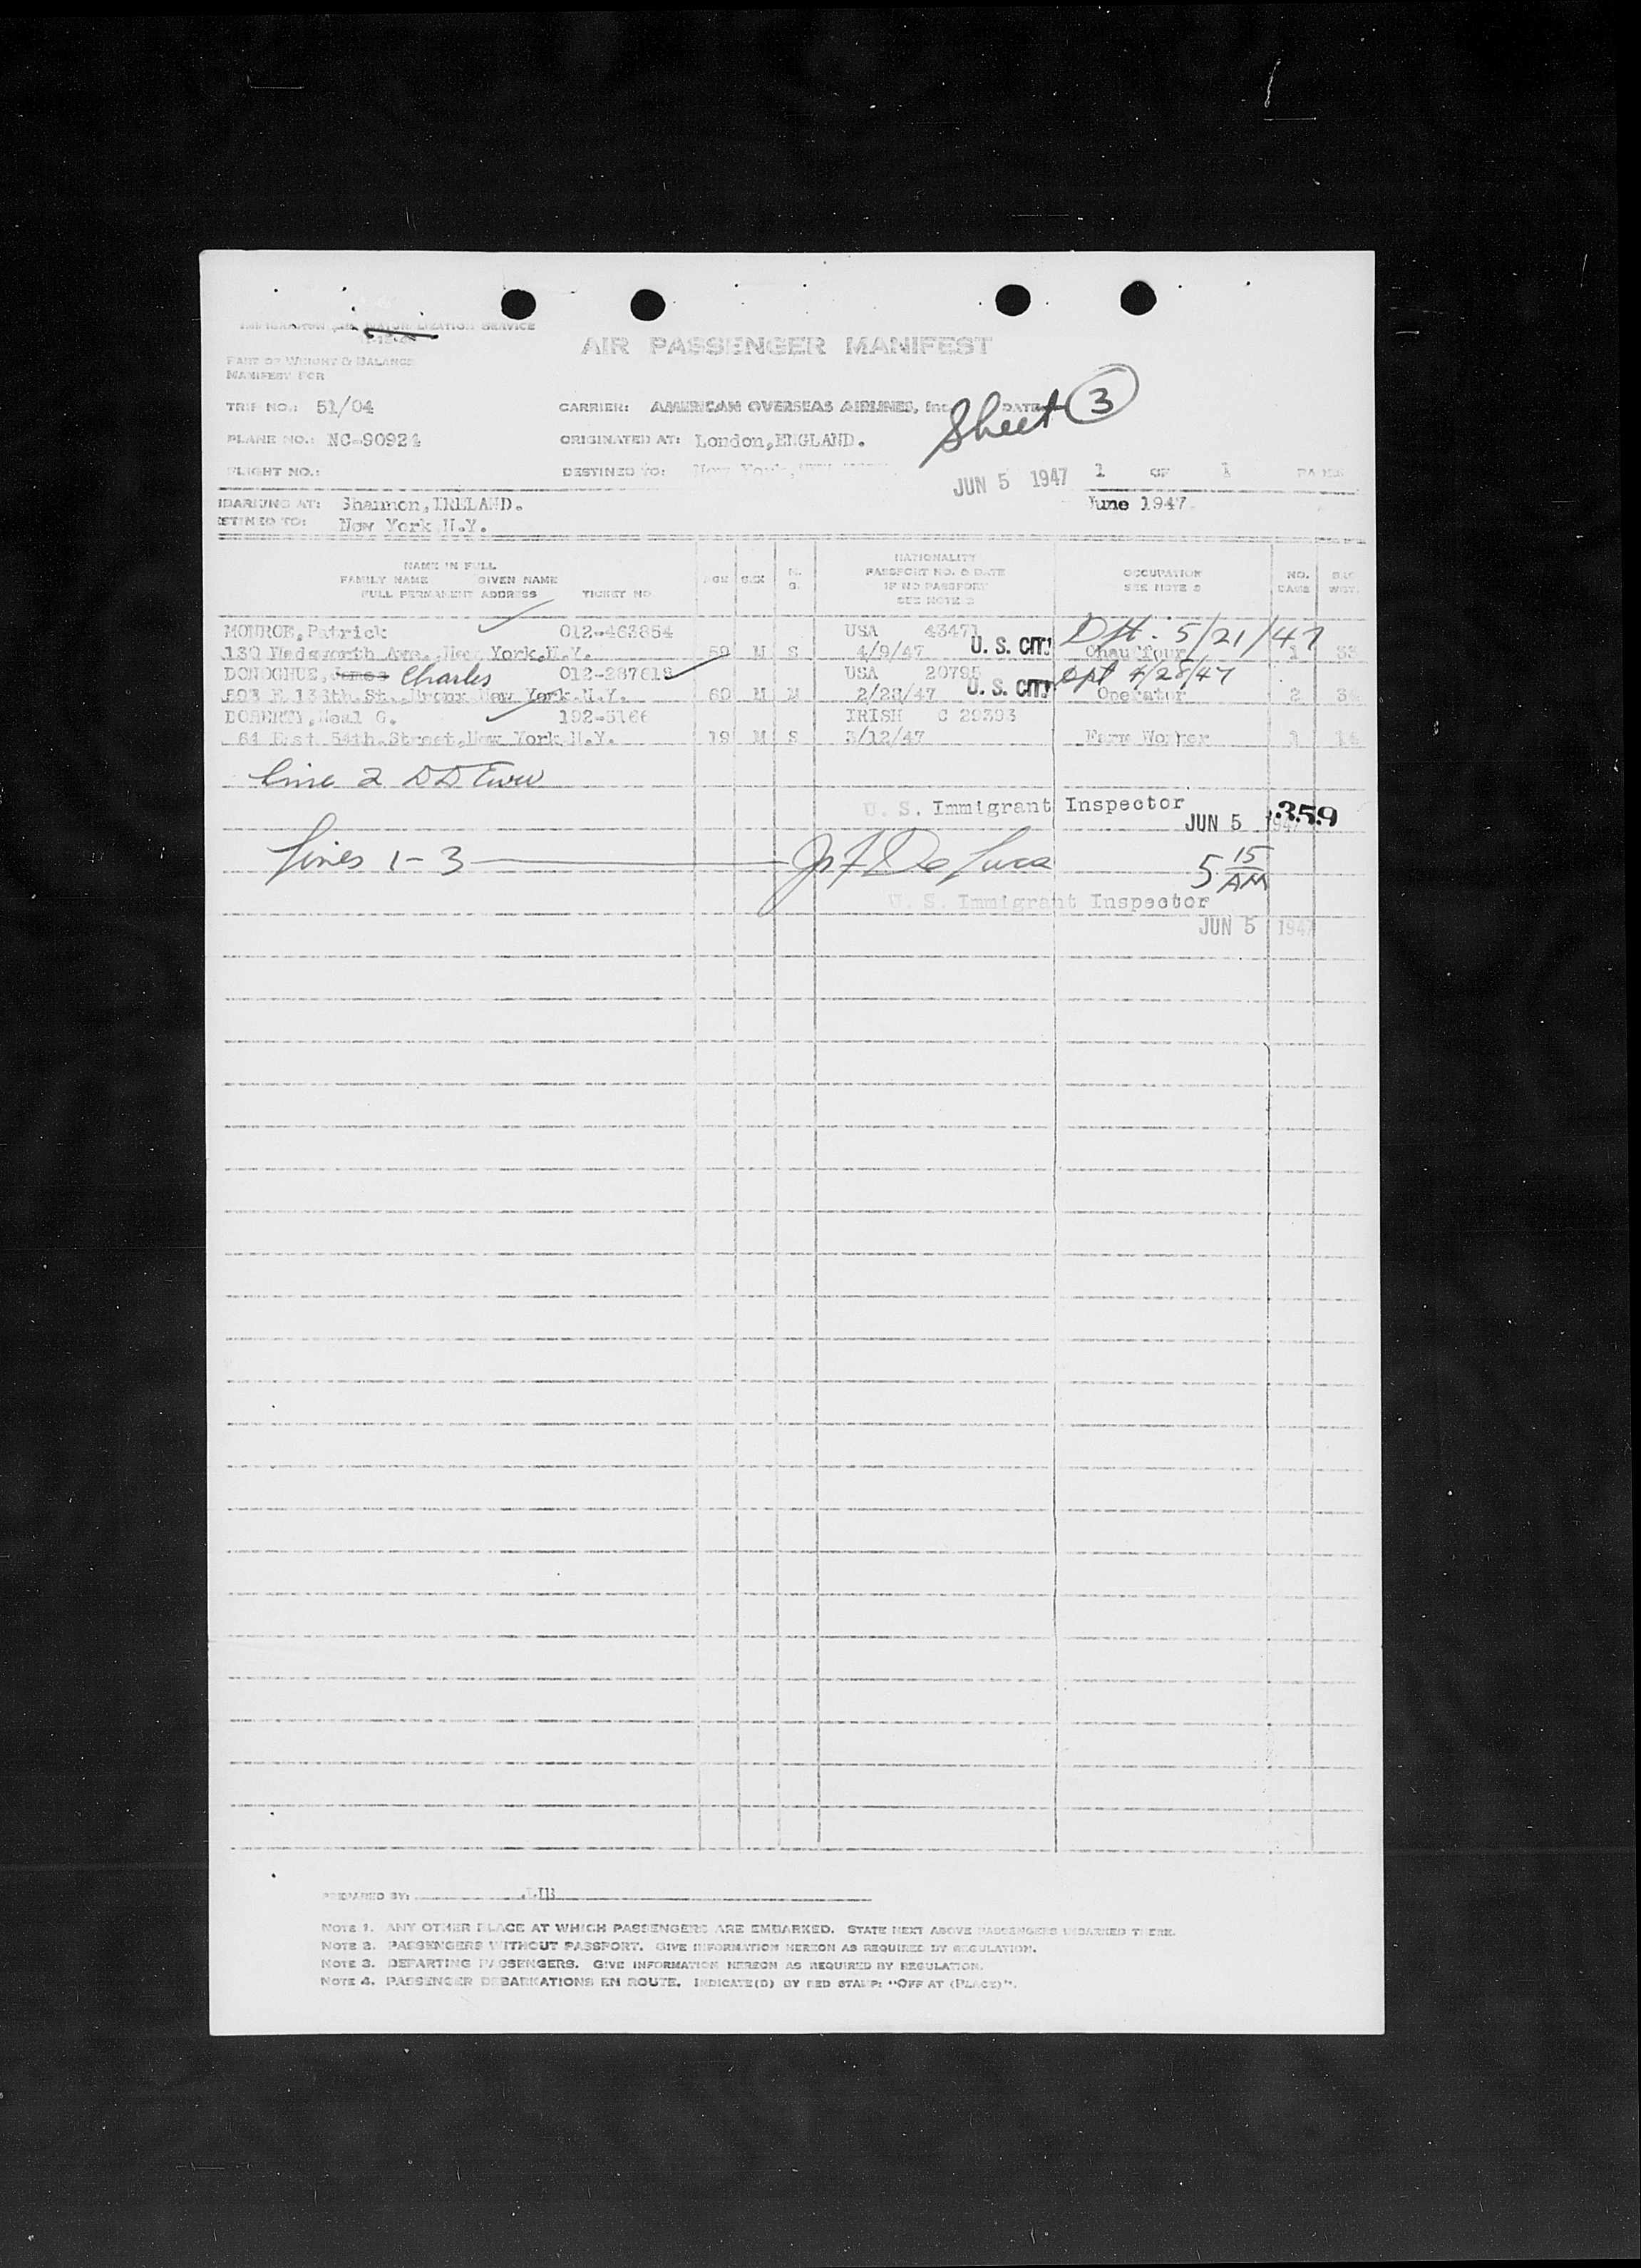 IMMIGRATION AND NATURALIZATION SERVICE
AIR PASSENGER MANIFEST
PART OF WEIGHT & BALANCE
MANIFEST FOR
Sheet 3
TRIP NO.: 51/04 CARRIER: AMERICAN OVERSEAS AIRLINES, Inc. DATE
PLANE NO.: NC-90924 ORIGINATED AT: London,ENGLAND.
FLIGHT NO.: DESTINED TO: New York,
JUN 5 1947 1 OF 1 PAGES
EMBARKING AT: Shannon,IRELAND. June 1947
DESTINED TO: New York N.Y.
NAME IN FULL
FAMILY NAME GIVEN NAME
FULL PERMANENT ADDRESS TICKET NO. AGE SEX M. S. NATIONALITY PASSPORT NO. & DATE IF NO PASSPORT SEE NOTE 2 OCCUPATION SEE NOTE 3 NO. BAGS BAG WGT.
MONROE,Patrick 012-463854 USA 43471 Dft. 5/21/47
Ave., New York,N.Y. 59 M S 4/9/47 U. S. CIT. Chauffeur 1 33
DONOGHUE, James Charles 012-287619 USA 20795 Opt 4/28/47
E 138th.St.,Bronx New York.N.Y. 60 M M 2/28/47 U. S. CIT. Operator 2
DOHERTY,Neal G. 192-5166 IRISH C 29393
64 East 54th.Street,New York N.Y. 19 M S 3/12/47 Farm Worker 1
Line 2
U. S. Immigrant Inspector
JUN 5 1947 359
Lines 1-3 De Luca 5 15 AM
U. S. Immigrant Inspector
JUN 5 1947
PREPARED BY:
NOTE 1. ANY OTHER PLACE AT WHICH PASSENGERS ARE EMBARKED. STATE NEXT ABOVE PASSENGERS EMBARKED THERE.
NOTE 2. PASSENGERS WITHOUT PASSPORT. GIVE INFORMATION HEREON AS REQUIRED BY REGULATION.
NOTE 3. DEPARTING PASSENGERS. GIVE INFORMATION HEREON AS REQUIRED BY REGULATION.
NOTE 4. PASSENGER DEBARKATIONS EN ROUTE. INDICATE(D) BY RED STAMP: "OFF AT (PLACE)".